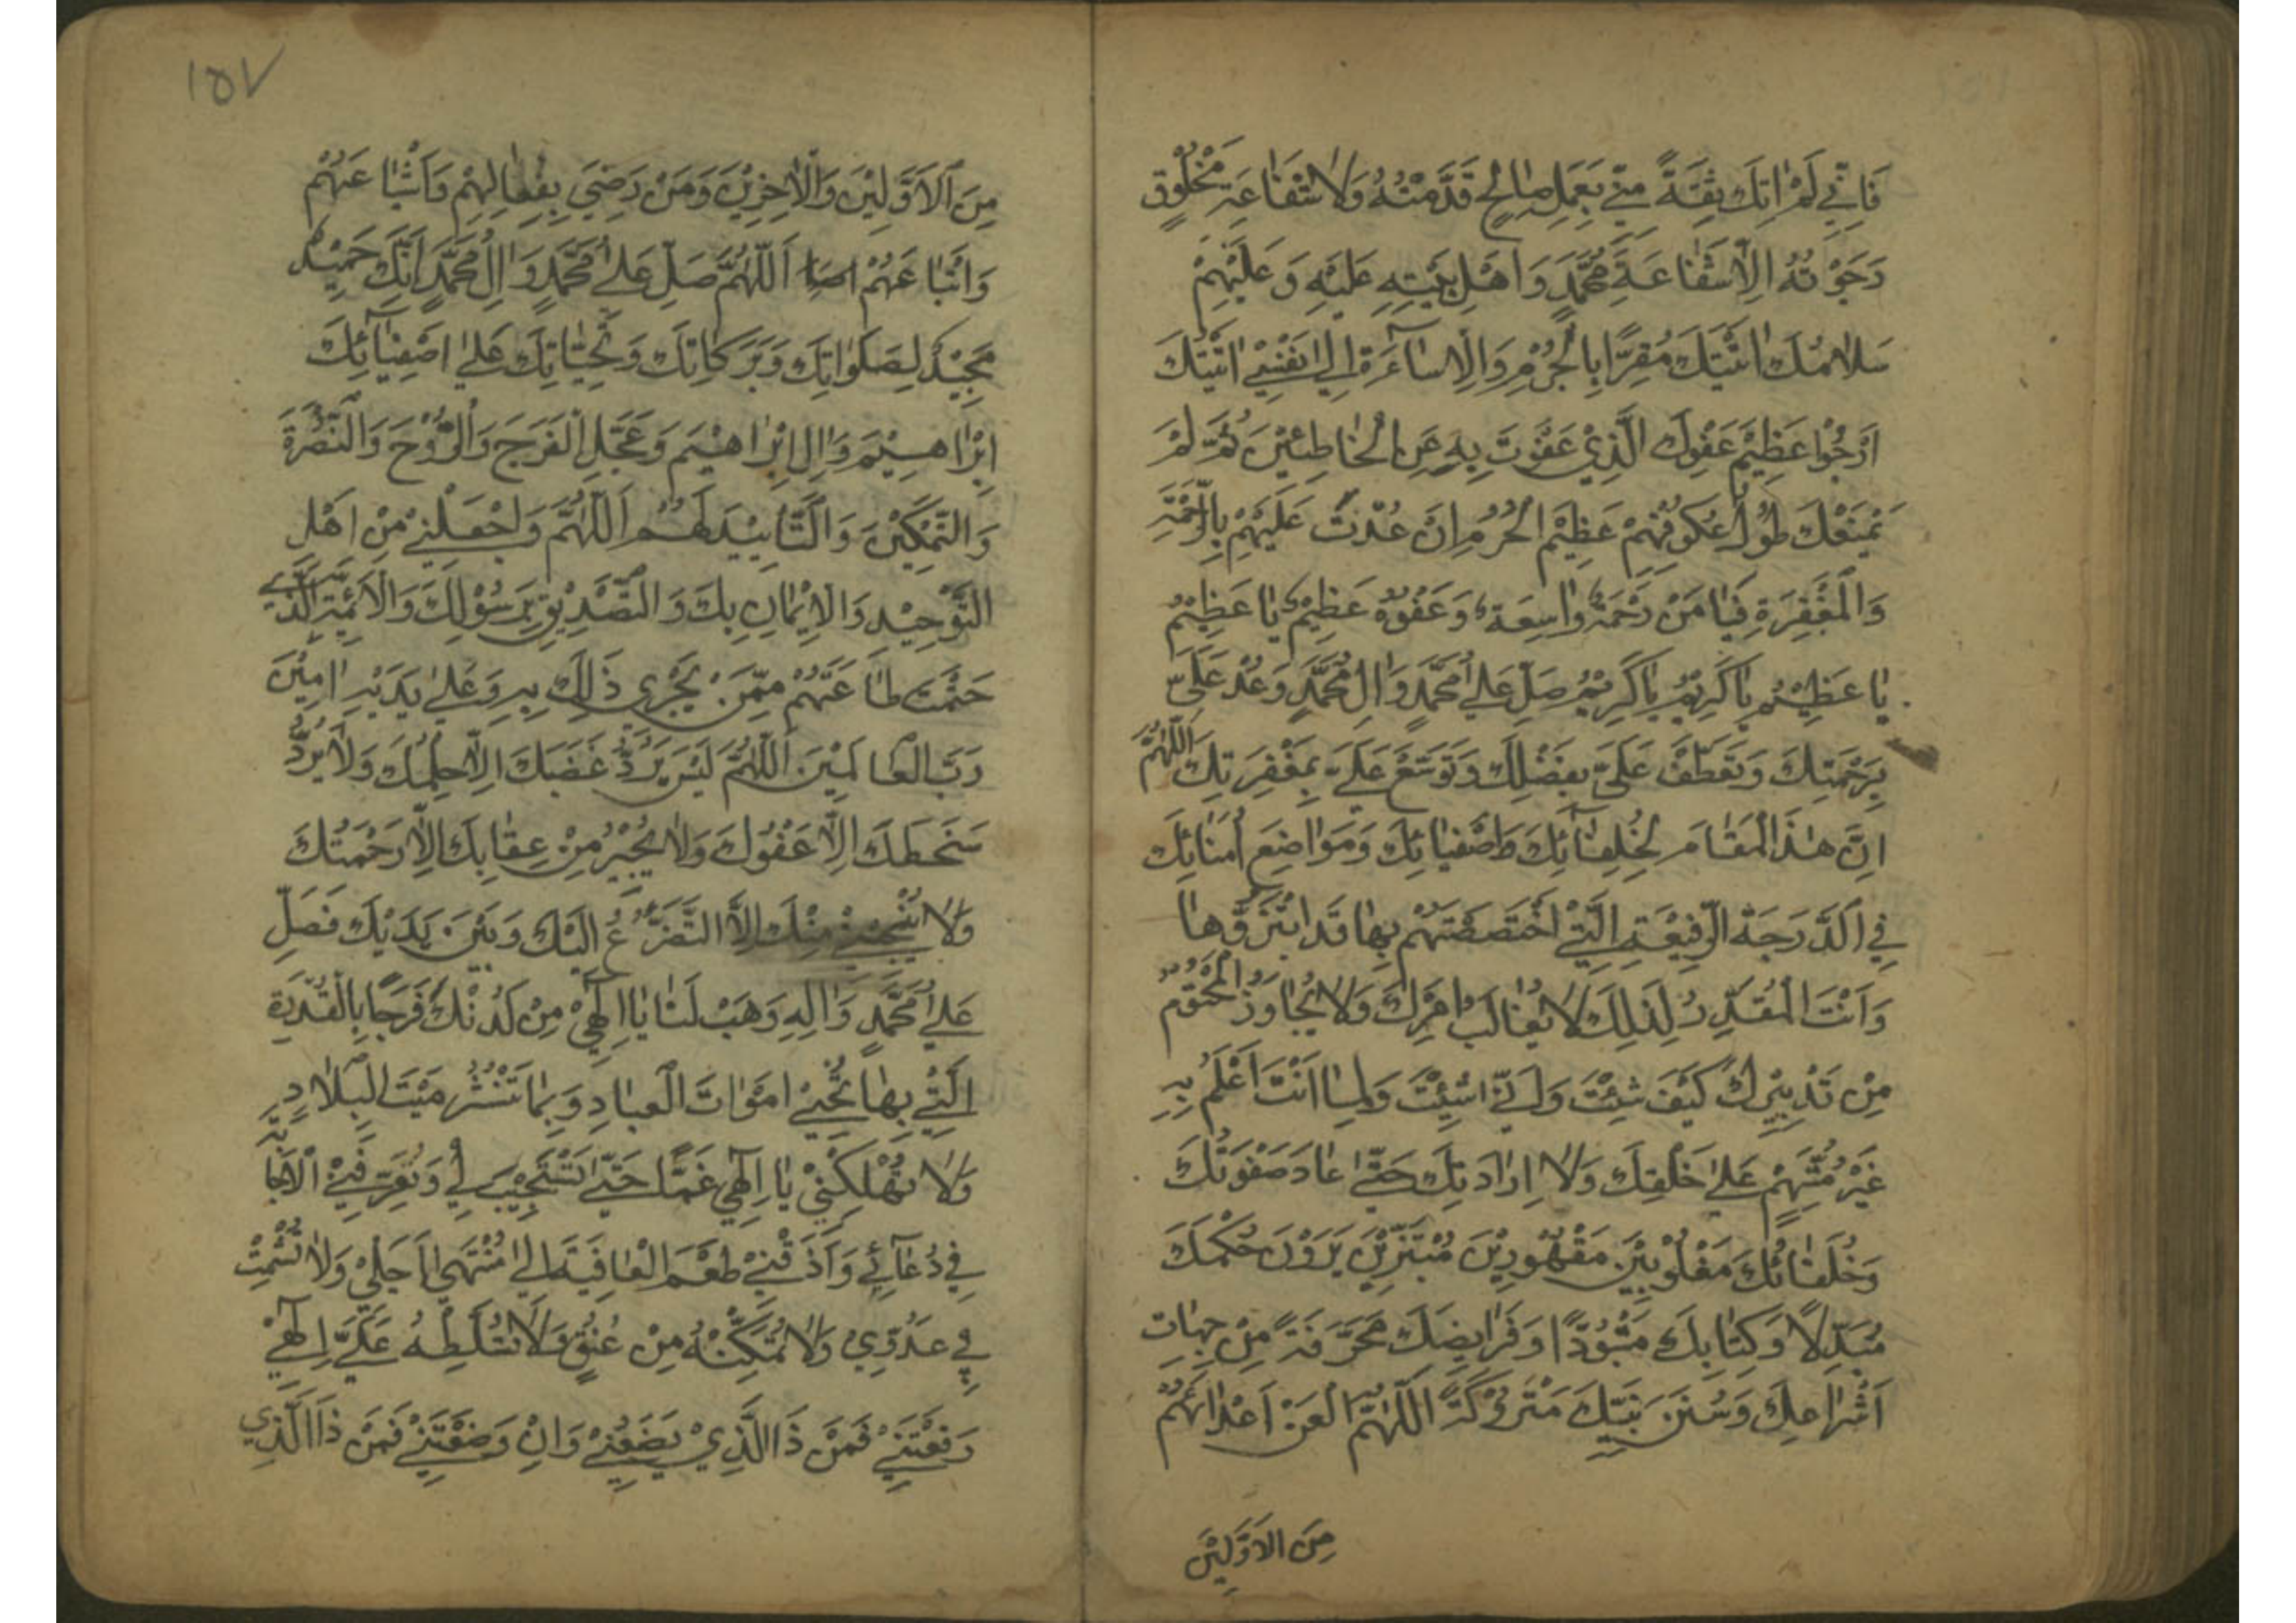 فَاِنّي لَمْ اٰتِكَ ثِقَةً مِنّي بِعَمَلٍ صٰالِحٍ قَدَّمْتُهُ وَلٰا شَفٰاعَةِ مَخْلُوقٍ
رَجَوْتُهُ اِلّٰا شَفٰاعَةَ مُحَمَّدٍ وَاَهْلِ بَيْتِهِ عَلَيْهِ وَعَلَيْهِمْ
سَلٰامُكَ اَتَيْتُكَ مُقِرًّا بِالْجُرْمِ وَالْاِسٰاۤءَةِ اِلىٰ نَفْسيْ اَتَيْتُكَ
اَرْجُوْا عَظِيْمَ عَفْوِكَ الَّذِيْ عَفَوْتَ بِهِ عَنِ الْخٰاطِئِيْنَ ثُمَّ لَمْ
يَمْنَعْكَ طُوْلُ عُكُوْفِهِمْ عَظِيْمِ الْجُرْمِ اِنْ عُدْتَ عَلَيْهِمْ بِالرَّحْمَةِ
وَالْمَغْفِرَةِ فَيٰا مَنْ رَحْمَتُهُ وٰاسِعَةٌ وَعَفْوُهُ عَظِيْمٌ يٰا عَظِيْمُ
يٰا عَظِيْمُ يٰا كَرِيْمُ يٰا كَرِيْمُ صَلِّ عَلىٰ مُحَمَّدٍ وَاٰلِ مُحَمَّدٍ وَعُدْ عَلَيَّ
بِرَحْمَتِكَ وَتَعَطَّفْ عَلَيَّ بِفَضْلِكَ وَتَوَسَّعْ عَلَيَّ بِمَغْفِرَتِكَ اَللّٰهُمَّ
اِنَّ هٰذَا الْمَقٰامَ لِخُلَفٰاۤئِكَ وَاَصْفِيٰائِكَ وَمَوٰاضِعَ اُمَنٰائِكَ
فِي الدَّرَجَةِ الرَّفِيْعَةِ الَّتِيْ اخْتَصَصْتَهُمْ بِهٰا قَدِ ابْتَزُّوْهٰا
وَاَنْتَ الْمُقَدِّرُ لِذٰلِكَ لٰا يُغٰالَبُ اَمْرُكَ وَلٰا يُجٰاوَزُ الْمَحْتُوْمُ
مِنْ تَدْبِيْرِكَ كَيْفَ شِئْتَ وَاَنّىٰ شِئْتَ وَلِمٰا اَنْتَ اَعْلَمُ بِهِ
غَيْرُ مُتَّهَمٍ عَلىٰ خَلْقِكَ وَلٰا اِرٰادَتِكَ حَتّىٰ عٰادَ صَفْوَتُكَ
وَخُلَفٰائُكَ مَغْلُوْبِيْنَ مَقْهُوْرِيْنَ مُبْتَزِّيْنَ يَرَوْنَ حُكْمَكَ
مُبَدَّلًا وَكِتٰابَكَ مَنْبُوْذًا وَفَرٰايِضَكَ مُحَرَّفَةً مِنْ جِهٰاتِ
اَشْرٰاعِكَ وَسُنَنَ نَبِيِّكَ مَتْرُوْكَةً اَللّٰهُمَّ الْعَنْ اَعْدٰائَهُمْ
مِنَ الْاَوَّلِيْنَ
١٥٧
مِنَ الْاَوَّلِيْنَ وَالْاٰخِرِيْنَ وَمَنْ رَضِيَ بِفِعٰالِهِمْ وَاَشْيٰاعَهُمْ
وَاَتْبٰاعَهُمْ اَللّٰهُمَّ صَلِّ عَلىٰ مُحَمَّدٍ وَاٰلِ مُحَمَّدٍ اِنَّكَ حَمِيْدٌ
مَجِيْدٌ كَصَلَوٰاتِكَ وَبَرَكٰاتِكَ وَتَحِيّٰاتِكَ عَلىٰ اَصْفِيٰاۤئِكَ
اِبْرٰاهِيْمَ وَاٰلِ اِبْرٰاهِيْمَ وَعَجِّلِ الْفَرَجَ وَالرَّوْحَ وَالنُّصْرَةَ
وَالتَّمْكِيْنَ وَالتَّأْيِيْدَ لَهُمْ اَللّٰهُمَّ وَاجْعَلْنِيْ مِنْ اَهْلِ
التَّوْحِيْدِ وَالْاِيْمٰانِ بِكَ وَالتَّصْدِيْقِ بِرَسُوْلِكَ وَالْاَئِمَّةِ الَّذِيْنَ
حَتَمْتَ طٰاعَتَهُمْ مِمَّنْ يَجْرِي ذٰلِكَ بِهِ وَعَلىٰ يَدَيْهِ اٰمِيْنَ
رَبَّ الْعٰالَمِيْنَ اَللّٰهُمَّ لَيْسَ يَرُدُّ غَضَبَكَ اِلّٰا حِلْمُكَ وَلٰا يَرُدُّ
سَخَطَكَ اِلّٰا عَفْوُكَ وَلٰا يُجِيْرُ مِنْ عِقٰابِكَ اِلّٰا رَحْمَتُكَ
وَلٰا يُنْجِيْنِيْ مِنْكَ اِلَّا التَّضَرُّعُ اِلَيْكَ وَبَيْنَ يَدَيْكَ فَصَلِّ
عَلىٰ مُحَمَّدٍ وَاٰلِهِ وَهَبْ لَنٰا يٰا اِلٰهِيْ مِنْ لَدُنْكَ فَرَجًا بِالْقُدْرَةِ
الَّتِيْ بِهٰا تُحْيِيْ اَمْوٰاتَ الْعِبٰادِ وَبِهٰا تَنْشُرُ مَيْتَ الْبِلٰادِ
وَلٰا تُهْلِكْنِيْ يٰا اِلٰهِي غَمًّا حَتّىٰ تَسْتَجِيْبَ لِيْ وَتُعَرِّفَنِيْ الْاِجٰابَةَ
فِيْ دُعٰاۤئِيْ وَاَذِقْنِيْ طَعْمَ الْعٰافِيَةِ اِلىٰ مُنْتَهىٰ اَجَلِيْ وَلٰا تُشْمِتْ
بِيْ عَدُوِّيْ وَلٰا تُمَكِّنْهُ مِنْ عُنُقِيْ وَلٰا تُسَلِّطْهُ عَلَيَّ اِلٰهِيْ
رَفَعْتَنِيْ فَمَنْ ذَا الَّذِيْ يَضَعُنِيْ وَاِنْ وَضَعْتَنِيْ فَمَنْ ذَا الَّذِي